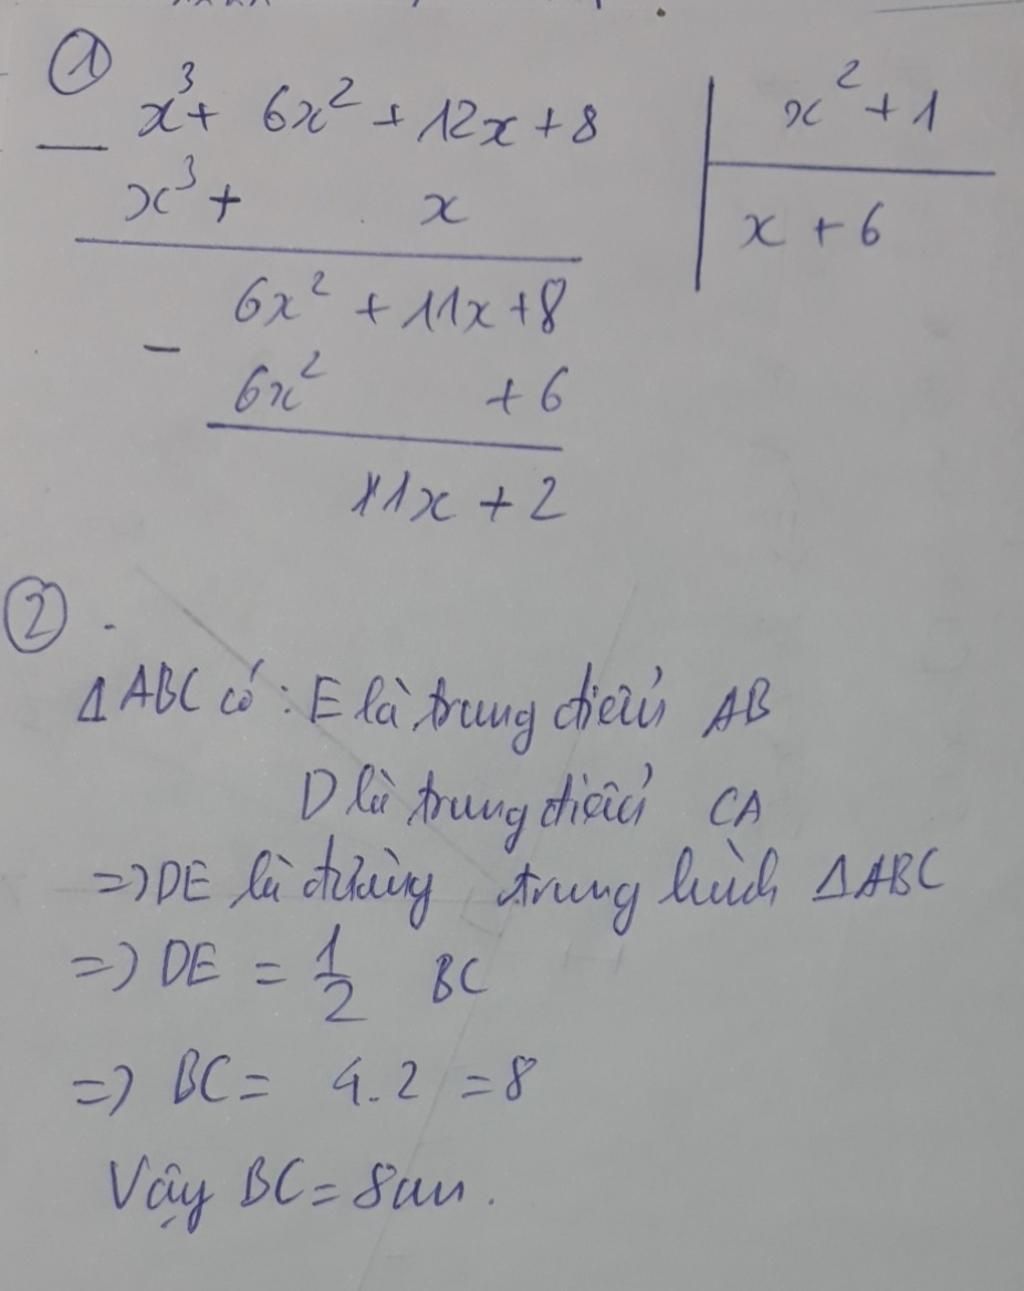 ①
x³ + 6x² + 12x + 8 | x² + 1
− x³ + x | x + 6
6x² + 11x + 8
− 6x² + 6
11x + 2
② .
Δ ABC có : E là trung điểm AB
D là trung điểm CA
=> DE là đường trung bình ΔABC
=> DE = 1/2 BC
=> BC = 4.2 = 8
Vậy BC = 8cm.